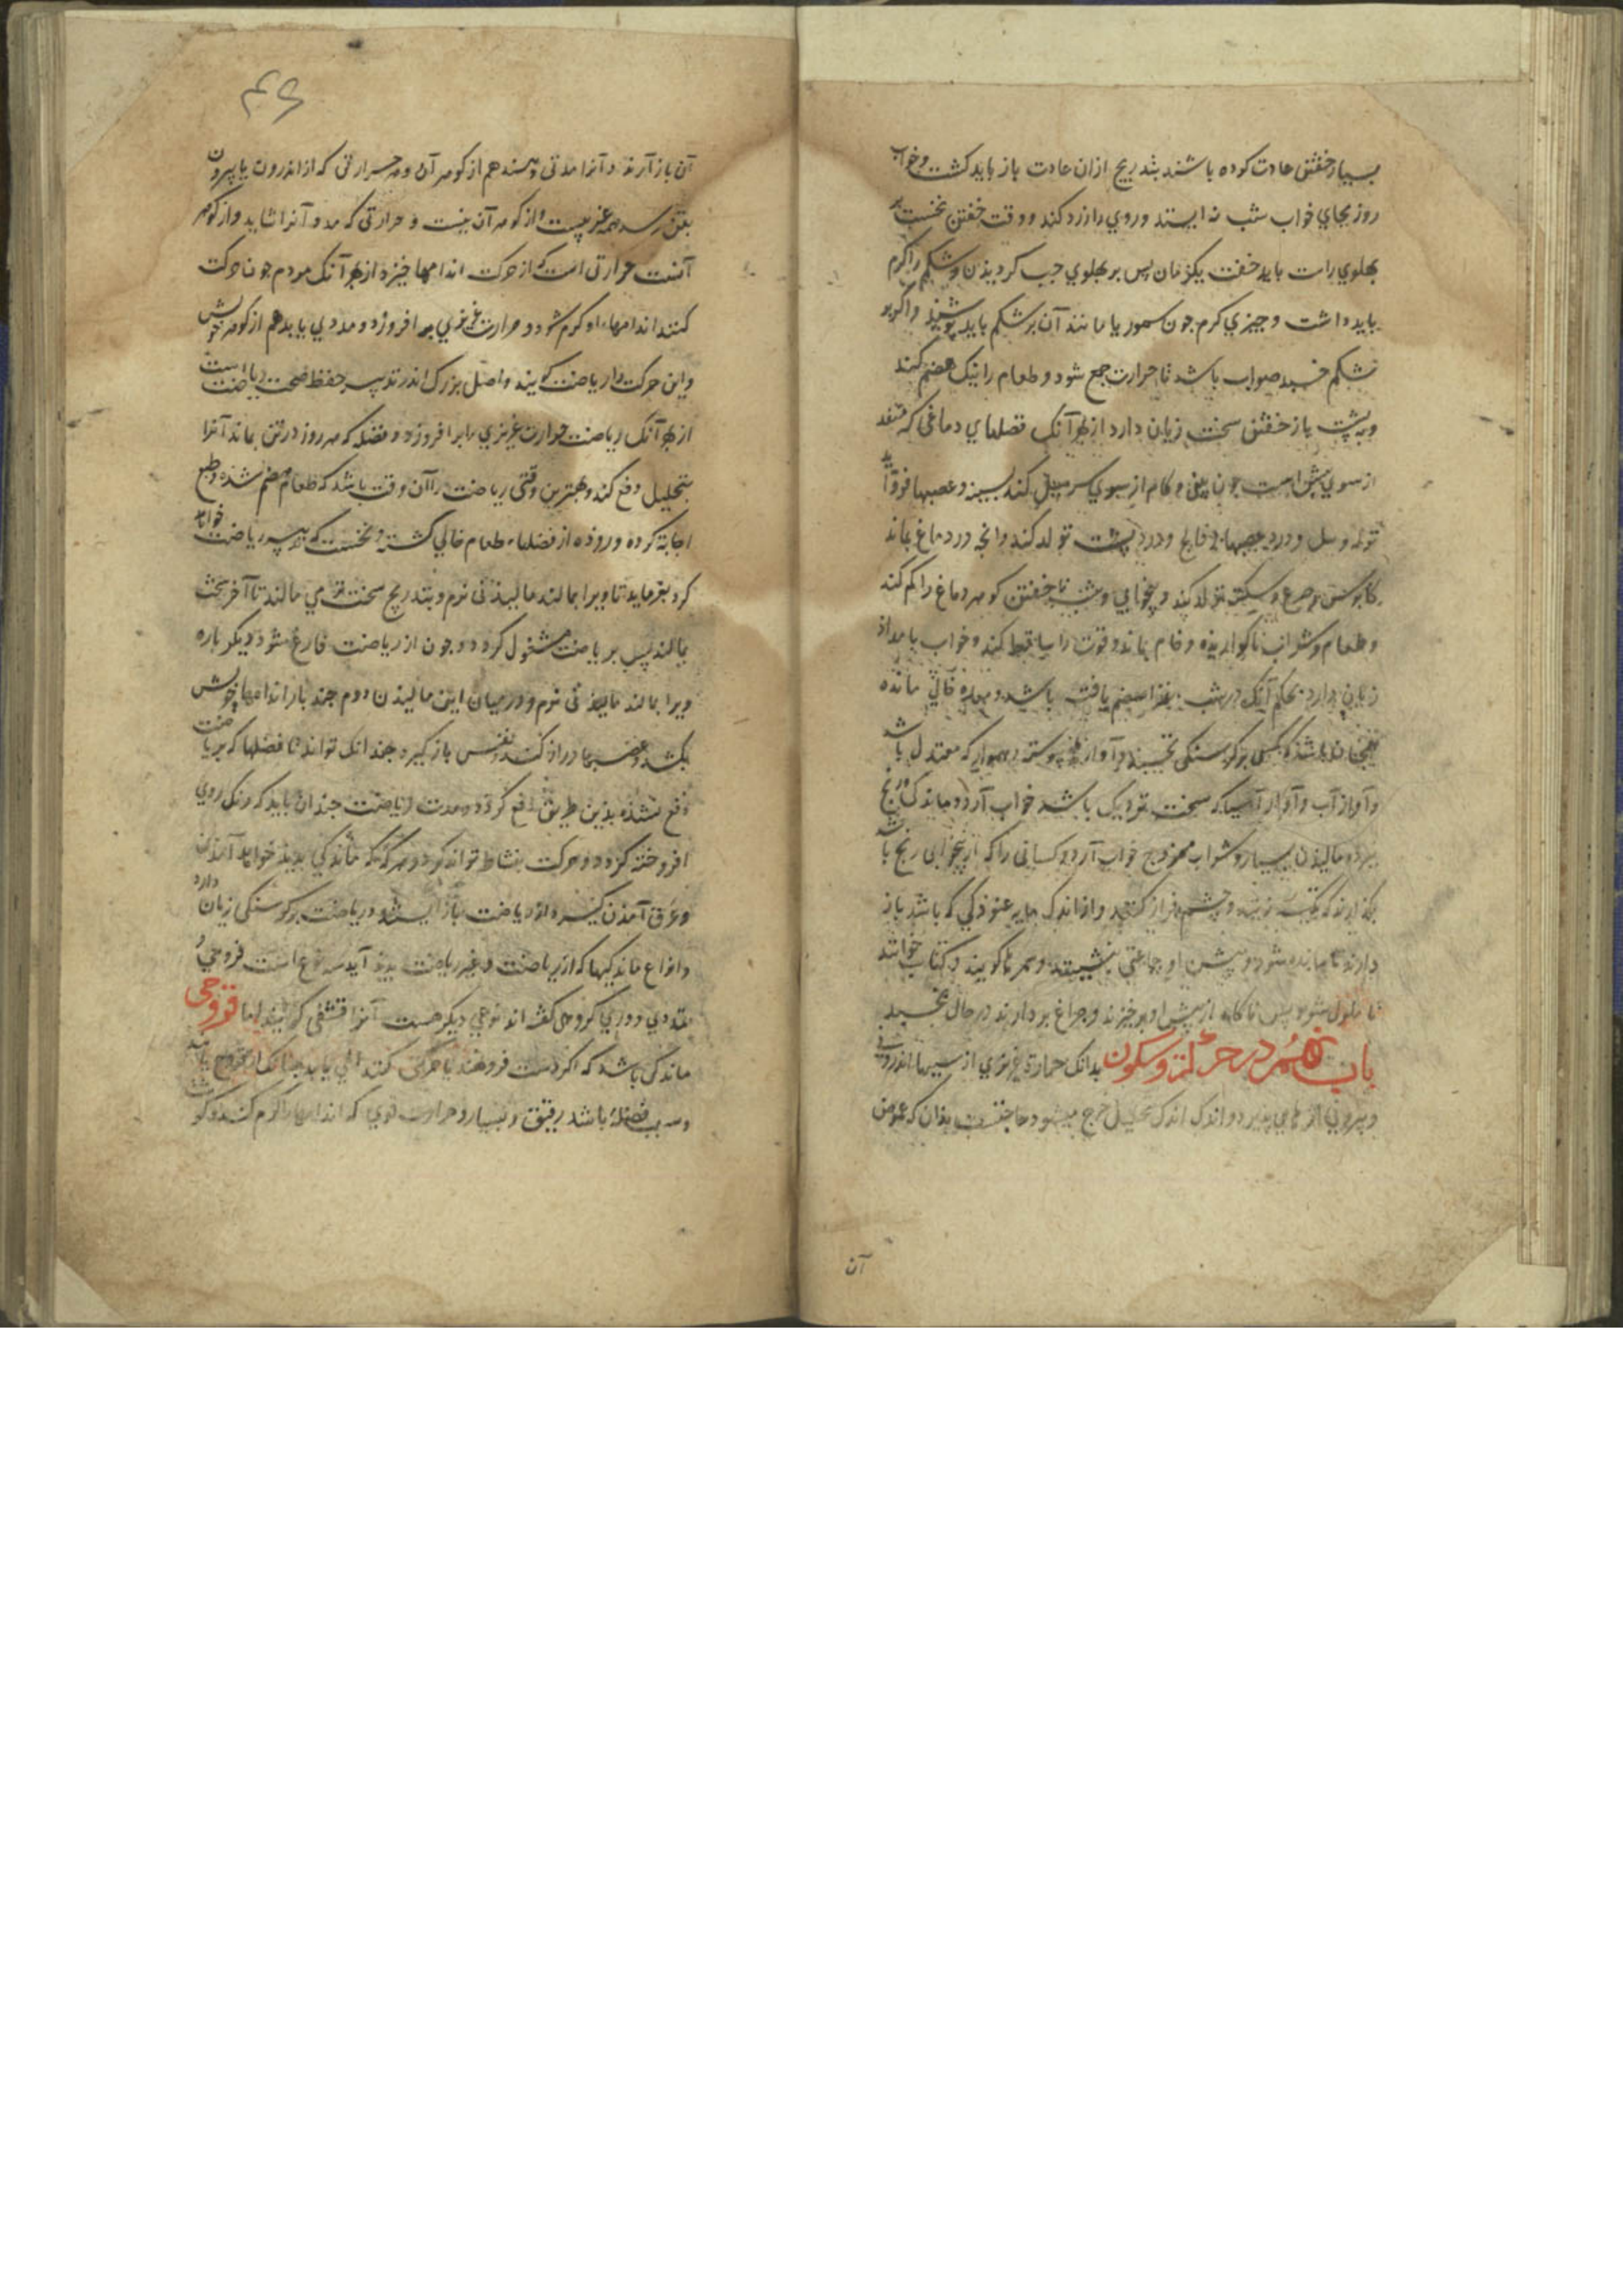 بسیار خفتن عادت کرده باشند بتدریج ازان عادت باز باید کشت و خواب
روز بجای خواب شب نه ایستد و روی را زرد کند و وقت خفتن نخست بر
پهلوی راست باید خفت یکزمان پس بر پهلوی جب کردیدن و شکم را کرم
باید داشت و جیزی کرم جون سمور یا مانند آن بر شکم باید پوشید و اگر بر
شکم خسبد صواب باشد تا حرارت جمع شود و طعام را نیک هضم کند
و به پشت باز خفتن سخت زیان دارد از بهر آنک فضلهای دماغی که منفذ
از سوی پیش است جون بینی و کام از سوی سر میل کند بسینه و عصبها فرو آید
نزله و سل و درد عصبها و فالج و درد پشت تولد کند و انجه در دماغ بماند
کابوس و صرع و سکته تولد کند و بیخوابی و شب ناخفتن کوهر دماغ را کم کند
و طعام و شراب ناکواریده و خام بماند و قوت را ساقط کند و خواب بامداد
زیان دارد بحکم آنک در شب غذا هضم یافته باشد و معده خالی مانده
همجنان باشد که کسی بر کرسنکی خسبد و آواز پیوسته هموار که معتدل باشد
و آواز آب و آواز آسیا که سخت نزدیک باشد خواب آرد و ماندکی و رنج
بیرد و مالیدن بسیار و شراب ممزوج خواب آرد و کسانی را که از بیخوابی رنج باشد
بکذارند که تکیه زند و چشم فراز کند و از اندک مایه غنودکی که باشد باز
دارند تا مانده شود و پیش او جماعتی بنشینند و سمر ها کویند و کتاب خوانند
تا ملول شود پس ناکاه از پیش او برخیزند و جراغ بردارند در حال بخسبد
باب در حرکت و سکون بدانک حرارة غریزی از سببهاء اندرونی
و بیرونی اندک اندک تحلیل خرج میشود حاجتست بدان که عوض
آن
۴۶
آن باز آرند و آنرا مدتی دهند هم از کوهر آن و هر حرارتی که از اندرون یا بیرون
بتن رسد همه غریبست و از کوهر آن نیست و حرارتی که مدد آنرا شاید و از کوهر
آنست حرارتی است که از حرکت اندامها خیزد از بهر آنک مردم جون حرکت
کنند اندامهاء او کرم شود و حرارت غریزی بر افروزد و مددی یابد هم از کوهر خویش
و این حرکت را ریاضت کویند و اصل بزرک اندر تدبیر حفظ صحت ریاضت است
از بهر آنک ریاضت حرارت غریزی را برافروزد و فضله که هر روز در تن بماند آنرا
بتحلیل دفع کند و بهترین وقتی ریاضت را آن وقت باشد که طعام هضم شده و طبع
اجابة کرده و روده از فضلهاء طعام خالی کشته و نخست که تدبیر ریاضت خواهد
کرد بفرماید تا ویرا بمالند مالیدنی نرم و بتدریج سخت تر می مالند تا آخر سخت
بمالند پس بریاضت مشغول کردد و جون از ریاضت فارغ شود دیکر باره
ویرا بمالند مالیدنی نرم و در میان این مالیدن دوم جند بار اندامهاء خویش
بکشد و عصبها دراز کند و نفس باز کیرد جندانک تواند تا فضلها که بریاضت
دفع نشده بدین طریق دفع کردد و مدت ریاضت جندان باید که رنک روی
افروخته کردد و حرکت بنشاط تواند کرد و هر که که ماندکی پدید خواهد آمدن
و عرق آمدن کیرد از ریاضت باز ایستد و ریاضت بر کرسنکی زیان دارد
و انواع ماندکیها که از ریاضت و غیر ریاضت پدید آید سه نوع است قروحی
تمددی و ورمی کروهی کفته اند نوعی دیکر هست آنرا قشفی کویند اما قروحی
ماندکی باشد که اکر دست فرو نهند یا حرکتی کنند المی یابد جنانک از قروح یابند
و سبب فضلهٔ باشد رقیق و بسیار و حرارت قوی که اندامها را کرم کند و کو